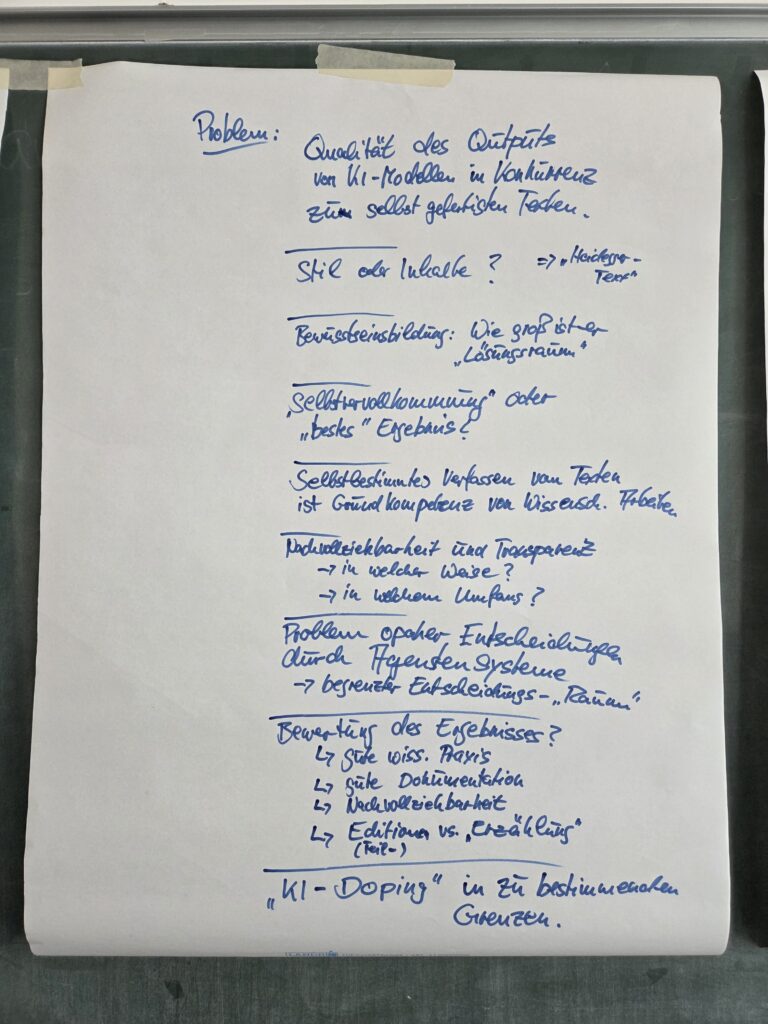 Problem:
Qualität des Outputs
von KI-Modellen in Konkurrenz
zu selbst gefertigten Texten.
Stil oder Inhalte? => „Heidegger-
Text"
Bewusstseinsbildung: Wie groß ist der
„Lösungsraum"
„Selbstvervollkommnung" oder
„bestes" Ergebnis?
Selbstbestimmtes Verfassen von Texten
ist Grundkompetenz von Wissensch. Arbeiten
Nachvollziehbarkeit und Transparenz
→ in welcher Weise?
→ in welchem Umfang?
Problem opaker Entscheidungen
durch Agentensysteme
→ begrenzter Entscheidungs-„Raum"
Bewertung des Ergebnisses?
↳ gute wiss. Praxis
↳ gute Dokumentation
↳ Nachvollziehbarkeit
↳ Editionen vs. „Erzählung"
(Teil-)
„KI-Doping" in zu bestimmenden
Grenzen.